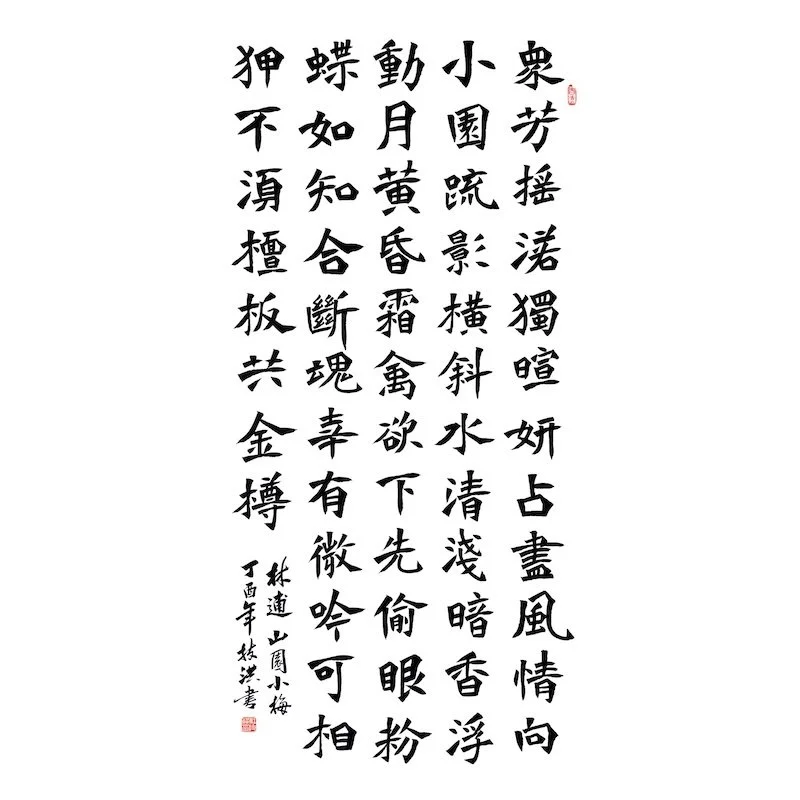 衆芳摇落獨暄妍占盡風情向
小園疏影橫斜水清淺暗香浮
動月黃昏霜禽欲下先偷眼粉
蝶如知合斷魂幸有微吟可相
狎不須檀板共金樽
林逋山園小梅
丁酉年洪書